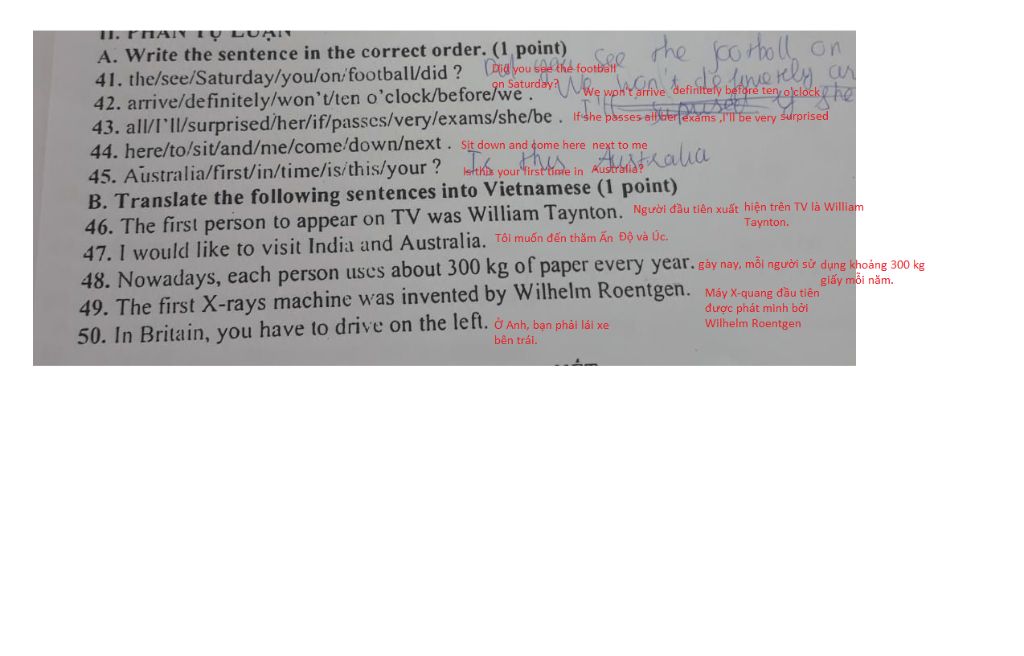 II. PHẦN TỰ LUẬN
A. Write the sentence in the correct order. (1 point)
see the football on
41. the/see/Saturday/you/on/football/did ? Did you see the football
on Saturday?
42. arrive/definitely/won't/ten o'clock/before/we . We won't arrive definitely before ten o'clock
We won't definitely ar
43. all/I'll/surprised/her/if/passes/very/exams/she/be . If she passes all her exams ,I'll be very surprised
I'll surprised if she
44. here/to/sit/and/me/come/down/next . Sit down and come here next to me
Is this Australia
45. Australia/first/in/time/is/this/your ? Is this your first time in Australia?
B. Translate the following sentences into Vietnamese (1 point)
46. The first person to appear on TV was William Taynton. Người đầu tiên xuất hiện trên TV là William
Taynton.
47. I would like to visit India and Australia. Tôi muốn đến thăm Ấn Độ và Úc.
48. Nowadays, each person uses about 300 kg of paper every year. gày nay, mỗi người sử dụng khoảng 300 kg
giấy mỗi năm.
49. The first X-rays machine was invented by Wilhelm Roentgen. Máy X-quang đầu tiên
được phát minh bởi
Wilhelm Roentgen
50. In Britain, you have to drive on the left. Ở Anh, bạn phải lái xe
bên trái.